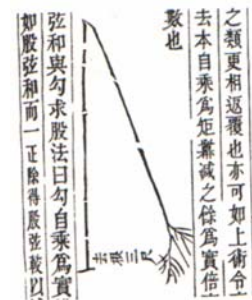 之類更相返覆也亦可如上術令
去本自乘爲矩冪減之餘爲實倍
數也
去根三尺
弦和與勾求股法曰勾自乘爲實
如股弦和而一正除得股弦較以